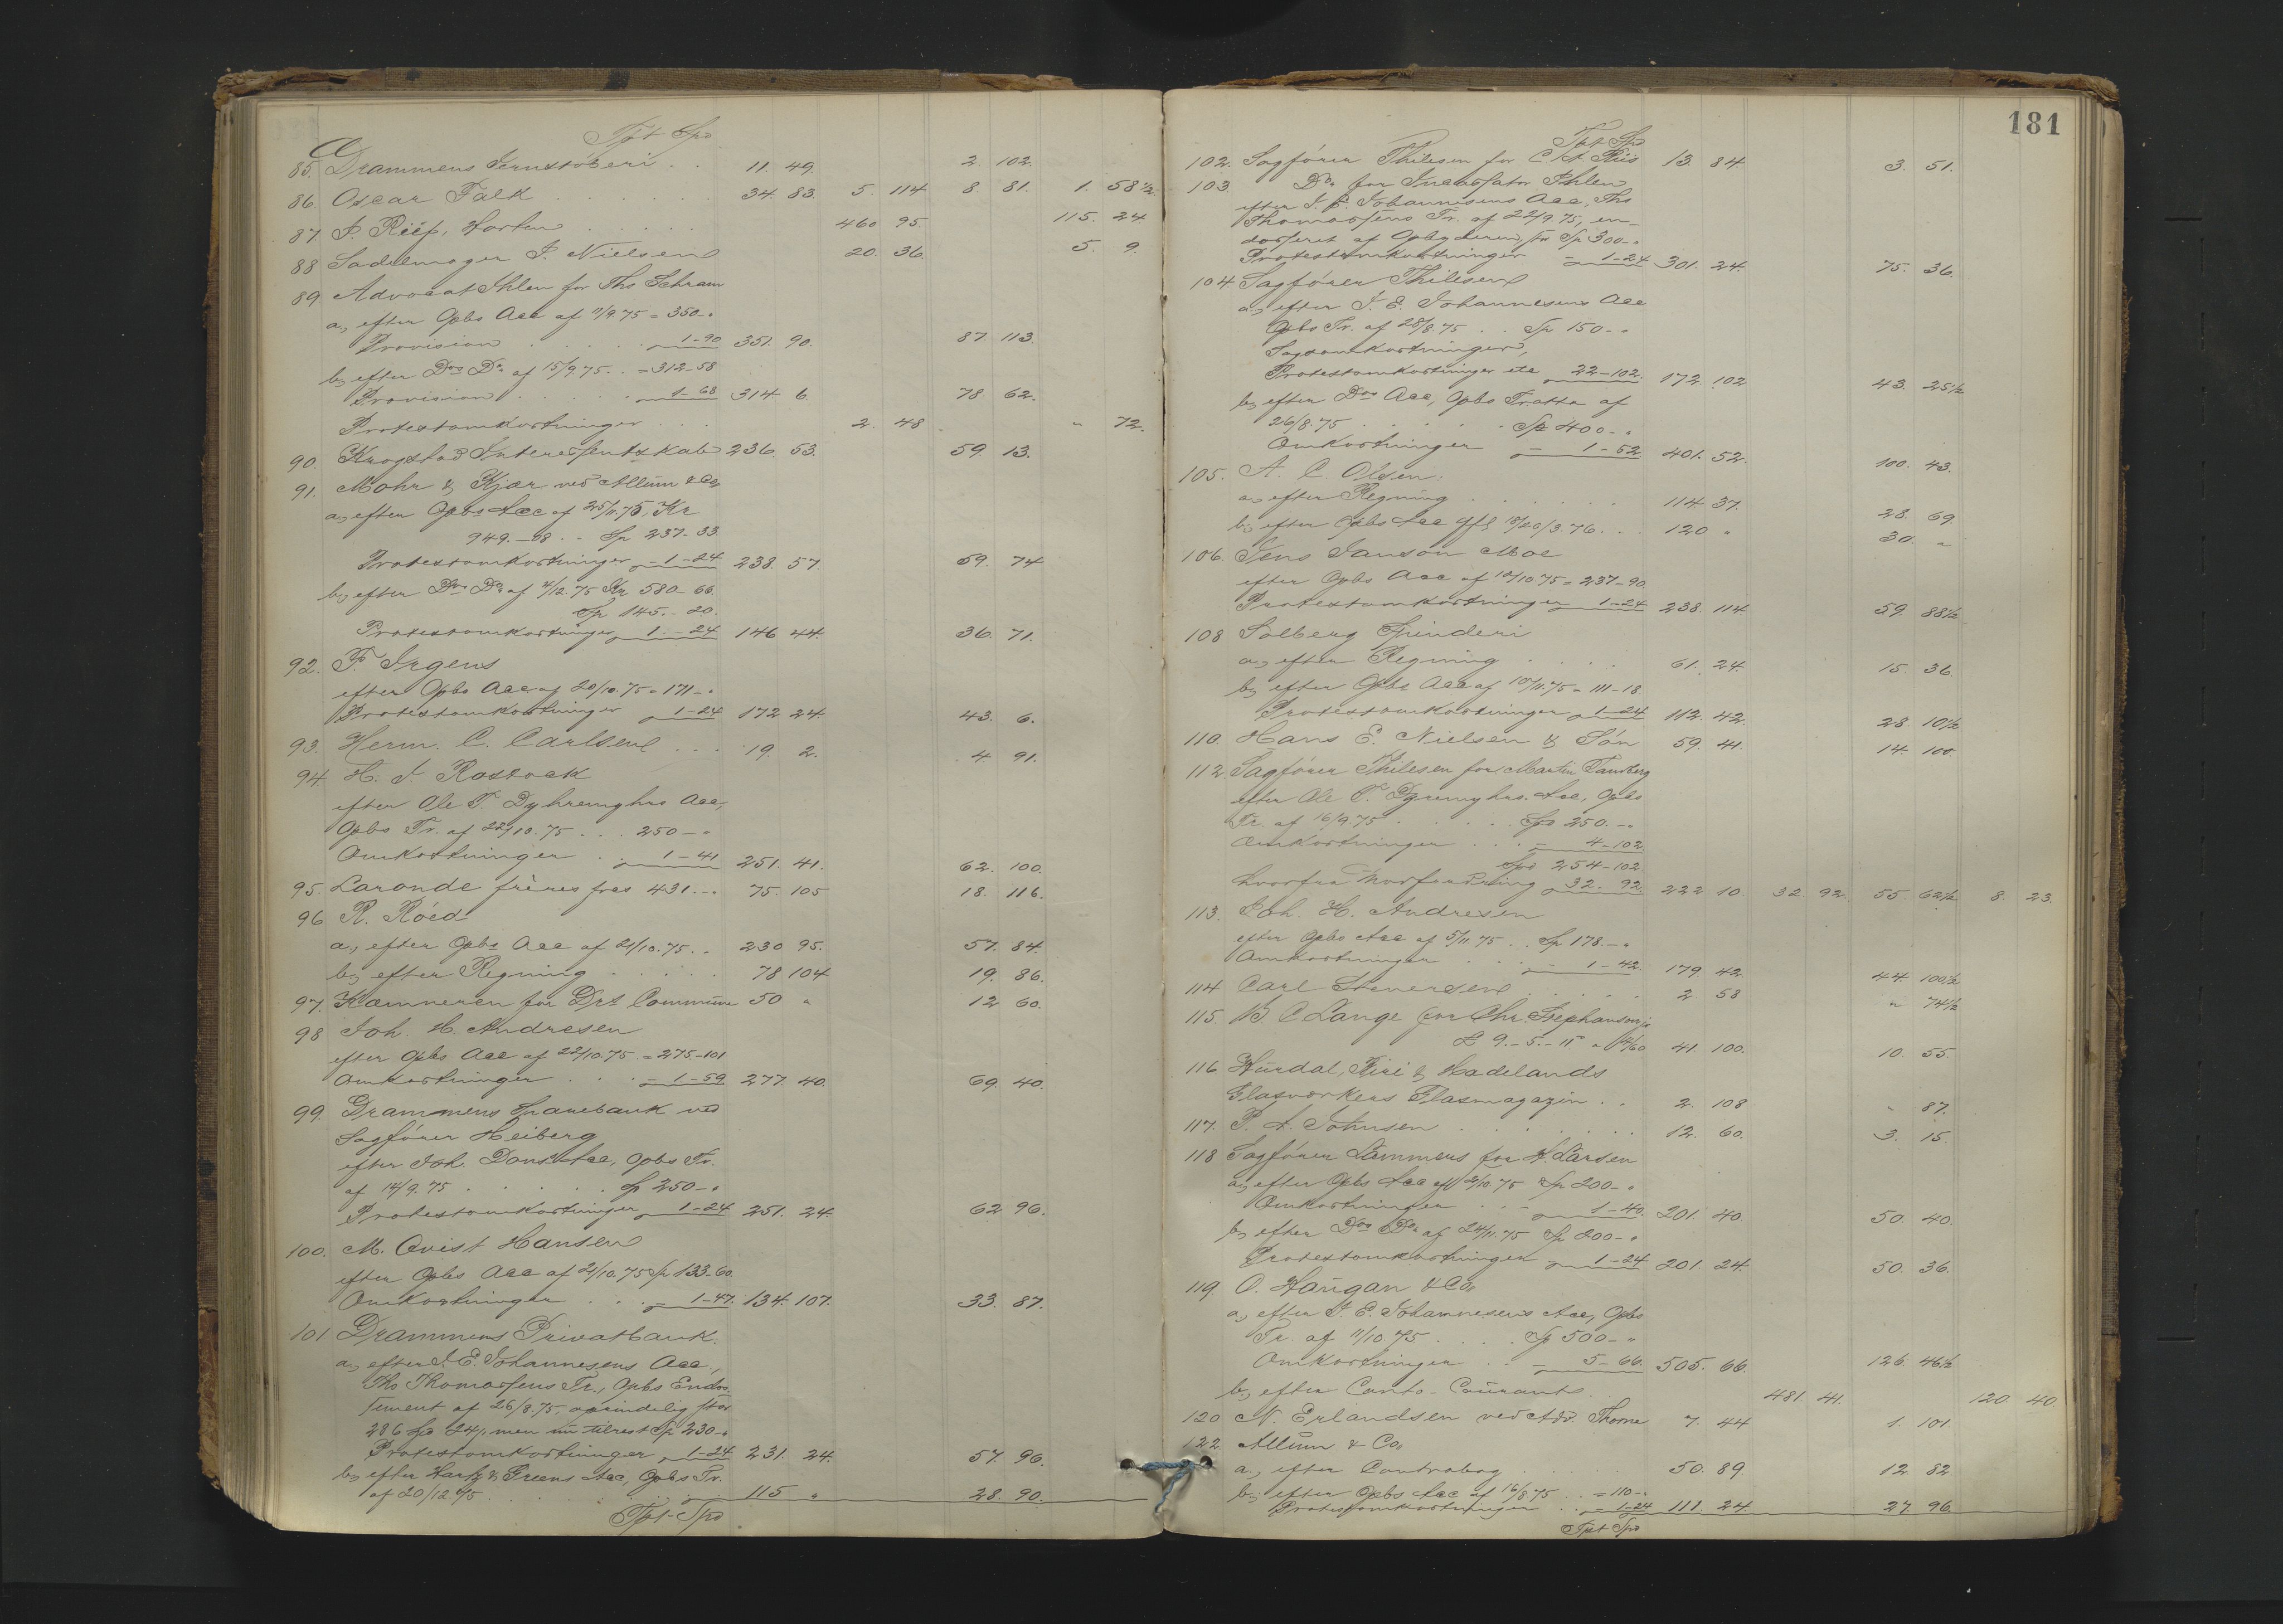 Tpt Spd
85. Drammens Jernstøberi . . 11. 49. 2. 102.
86. Oscar Falk . . . . . . 34. 83. 5. 114 8. 81. 1. 58 1/2
87. P. Riis, Horten . . . . . 460 95. 115. 24
88 Sadelmager P. Nielsen 20. 36. 5. 9.
89 Advocat Ihlen for Ths Schram
a, efter Opbs Acc af 11/9.75 = 350-"
Provision . . . . . 1-90 351. 90. 87. 113.
b, efter Dos Do af 15/9.75 . . = 312-58
Provision . . . . . 1-68 314 6. 78. 62.
Protestomkostninger . . . 2. 48 " 72.
90. Krogstad Interessentskab 236. 53. 59. 13.
91. Mohr & Kjær ved Allum & Co
a, efter Opbs Acc af 25/11.75, Kr
949.-68 . . Sp 237-33
Protestomkostninger 1-24 238. 57. 59. 74
b, efter Dos Do af 4/12.75 Kr 580-66.
Sp 145.-20.
Protestomkostninger 1.-24 146 44. 36. 71.
92. F. Irgens
efter Opbs Acc af 20/10.75 = 171-"
Protestomkostninger 1-24 172 24. 43. 6.
93. Herm. C. Carlsen . . . 19. 2. 4 91.
94. H. J. Rostock
efter Ole T. Dyhrenghrs Acc,
Opbs Tr. af 22/10.75 . . . 250-"
Omkostninger . . 1-41 251. 41. 62. 100.
95. Laronde frères frcs 431.-" 75. 105 18. 116.
96 R. Röed
a, efter Opbs Acc af 21/10.75 . . 230 95. 57. 84.
b, efter Regning . . . . . 78 104 19. 86.
97. Kæmneren for Drs Commune 50 " 12 60.
98 Joh. H. Andresen
efter Opbs Acc af 22/10.75 = 275-101
Omkostninger . . . - 1-59 277. 40. 69. 40.
99. Drammens Sparebank ved
Sagfører Heiberg
efter Joh. Dons Acc, Opbs Tr.
af 14/9.75 . . . . . Sp 250-"
Protestomkostninger 1-24 251. 24. 62 96.
100. M. Qvist Hansen
efter Opbs Acc af 21/10.75 Sp 133-60.
Omkostninger . . . - 1-47. 134. 107. 33. 87.
101 Drammens Privatbank.
a, efter J. E. Johannesens Acc.,
Ths Thomassens Tr., Opbs Endos-
sement af 26/8.75, oprindelig stor
286 Sp 24, men nu tilrest Sp 230-"
Protestomkostninger 1-24 231. 24. 57. 96.
b, efter Harty & Greens Acc, Opbs Tr.
af 20/12.75 . . . . 115 " 28. 90.
Tpt-Spd
181
Tpt Spd
102. Sagfører Thilesen for C. A. Riis 13. 84 3. 51.
103. Do for Incassator Ihlen
efter J. E. Johannesens Acc, Ths
Thomassens Tr. af 22/9.75, en-
dosseret af Opbyderen, for Sp 300-"
Protestomkostninger - 1-24 301. 24. 75. 36.
104. Sagfører Thilesen
a, efter J. E. Johannesens Acc
Opbs Tr. af 28/8.75 . . Sp 150-"
Sagsomkostninger,
Protestomkostninger etc 22-102. 172. 102 43. 25 1/2
b, efter Dos Acc, Opbs Tratta af
26/8.75 . . . . . Sp 400-"
Omkostninger - 1-52. 401. 52. 100. 43.
105. A. C. Olsen.
a, efter Regning . . . . . 114 37. 28. 69.
b, efter Opbs Acc pft 18/20/3.76 . . . 120 " 30. "
106. Jens Janson Moe
efter Opbs Acc af 12/10.75 = 237-90
Protestomkostninger 1-24 238. 114. 59. 88 1/2
108 Solberg Spinderi
a, efter Regning . . . . 61. 24. 15. 36.
b, efter Opbs Acc af 10/11.75 = 111-18
Protestomkostninger 1-24 112. 42. 28. 10 1/2
110. Hans E. Nielsen & Søn 59. 41. 14. 100.
112. Sagfører Thilesen for Martin Tansberg
efter Ole T. Dyrenghrs. Acc, Opbs
Tr. af 16/9.75 . . . . . Spd 250.-"
Omkostninger . . . - 4-102.
Spd 254-102
hvorfra Modfordring 32-92. 222 10. 32 92. 55 62 1/2 8. 23.
113. Joh. H. Andresen
efter Opbs Acc af 5/11.75 . . Sp 178.-"
Omkostninger . . . - 1-42. 179. 42 44. 100 1/2
114 Carl Sivversen . . . . . 2. 58 " 74 1/2
115. B C Lange for Chr. Stephansen jr
£ 9.-5.-11 a 4/60 41. 100. 10. 55.
116. Hurdal, Biri & Hadelands
Glasværkers Glasmagazin . . 2. 108 " 87.
117. P. A. Johnsen . . . . . . . 12. 60. 3. 15.
118 Sagfører Lammers for A. Larsen
a, efter Opbs Acc af 2/10.75 Sp 200-"
Omkostninger . . - 1-40. 201. 40. 50. 40.
b, efter Dos Do af 24/11.75 Sp 200-"
Protestomkostninger - 1-24 201. 24. 50. 36.
119 O. Haugan & Co
a, efter J. E. Johannesens Acc, Opbs
Tr. af 11/10.75 . . . . Sp 500-"
Omkostninger . . - 5-66. 505. 66. 126. 46 1/2
b, efter Conto-Courant . . 481. 41. 120. 40
120 N. Erlandsen ved Adv. Thome 7. 44 1. 101.
122 Allum & Co
a, efter Contrabog . . . . . 50. 89. 12. 82
b, efter Opbs Acc af 16/8.75 . . = 110-"
Protestomkostninger . . - 1-24 111. 24. 27. 96.
Tpt Spd